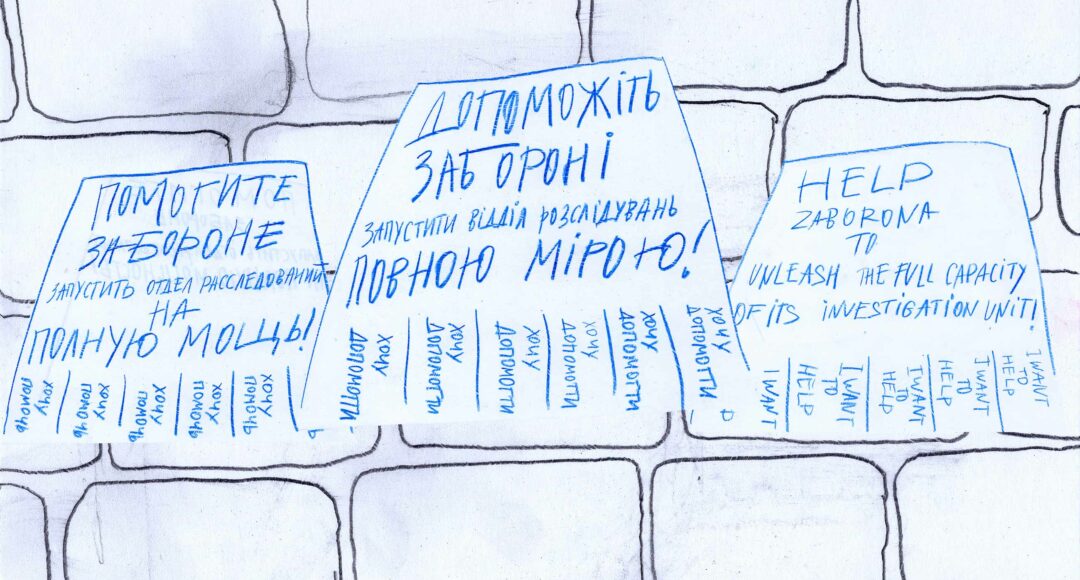 ПОМОГИТЕ
ЗАБОРОНЕ
ЗАПУСТИТЬ ОТДЕЛ РАССЛЕДОВАНИЙ
НА
ПОЛНУЮ МОЩЬ!
ХОЧУ ПОМОЧЬ
ХОЧУ ПОМОЧЬ
ХОЧУ ПОМОЧЬ
ХОЧУ ПОМОЧЬ
ХОЧУ ПОМОЧЬ
ДОПОМОЖІТЬ
ЗАБОРОНІ
ЗАПУСТИТИ ВІДДІЛ РОЗСЛІДУВАНЬ
ПОВНОЮ МІРОЮ!
ХОЧУ ДОПОМОГТИ
ХОЧУ ДОПОМОГТИ
ХОЧУ ДОПОМОГТИ
ХОЧУ ДОПОМОГТИ
ХОЧУ ДОПОМОГТИ
ХОЧУ ДОПОМОГТИ
HELP
ZABORONA
TO
UNLEASH THE FULL CAPACITY
OF ITS INVESTIGATION UNIT!
I WANT
TO
HELP
I WANT
TO
HELP
I WANT
TO
HELP
I WANT
TO
HELP
I WANT